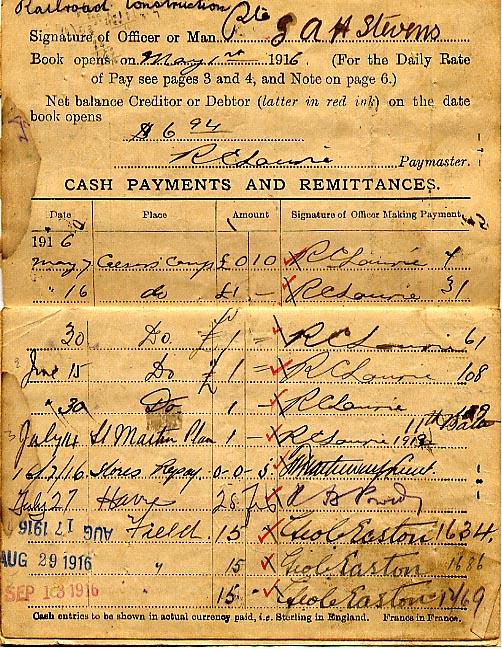 Railroad Construction
Signature of Officer or Man Pte G A H Stevens
Book opens on May 1st 1916 (For the Daily Rate
of Pay see pages 3 and 4, and Note on page 6.)
Net balance Creditor or Debtor (latter in red ink) on the date
book opens
$6 94
R C Laurie Paymaster.
CASH PAYMENTS AND REMITTANCES.
Date Place Amount Signature of Officer Making Payment
1916
May 7 Caesars Camp £0 10 R C Laurie 4
" 16 do £1 - R C Laurie 31
30 Do £1 - R C Laurie 61
June 15 Do £1 - R C Laurie 108
" 30 Do 1 - R C Laurie
11th Batn
July 14 St Martin Plain 1 - R C Laurie
16/7/16 Stores Repay 0-0-5
July 27 Havre 28
AUG 17 1916 Field 15 Geo C Easton 1634
AUG 29 1916 " 15 Geo C Easton 1686
SEP 13 1916 " 15 Geo C Easton 1769
Cash entries to be shown in actual currency paid, i.e. Sterling in England. Francs in France.